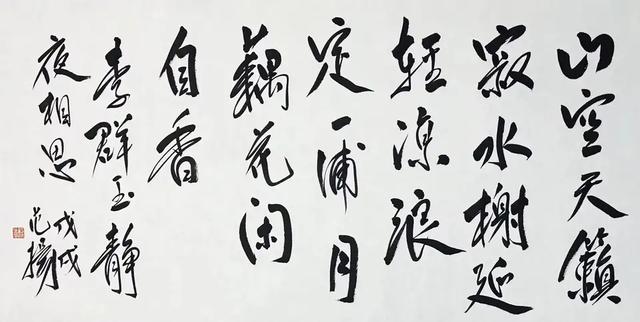 山空天籟
寂水榭延
輕涼浪
定一浦月
藕花闲
自香
李群玉静
夜相思
戊戌
范揚